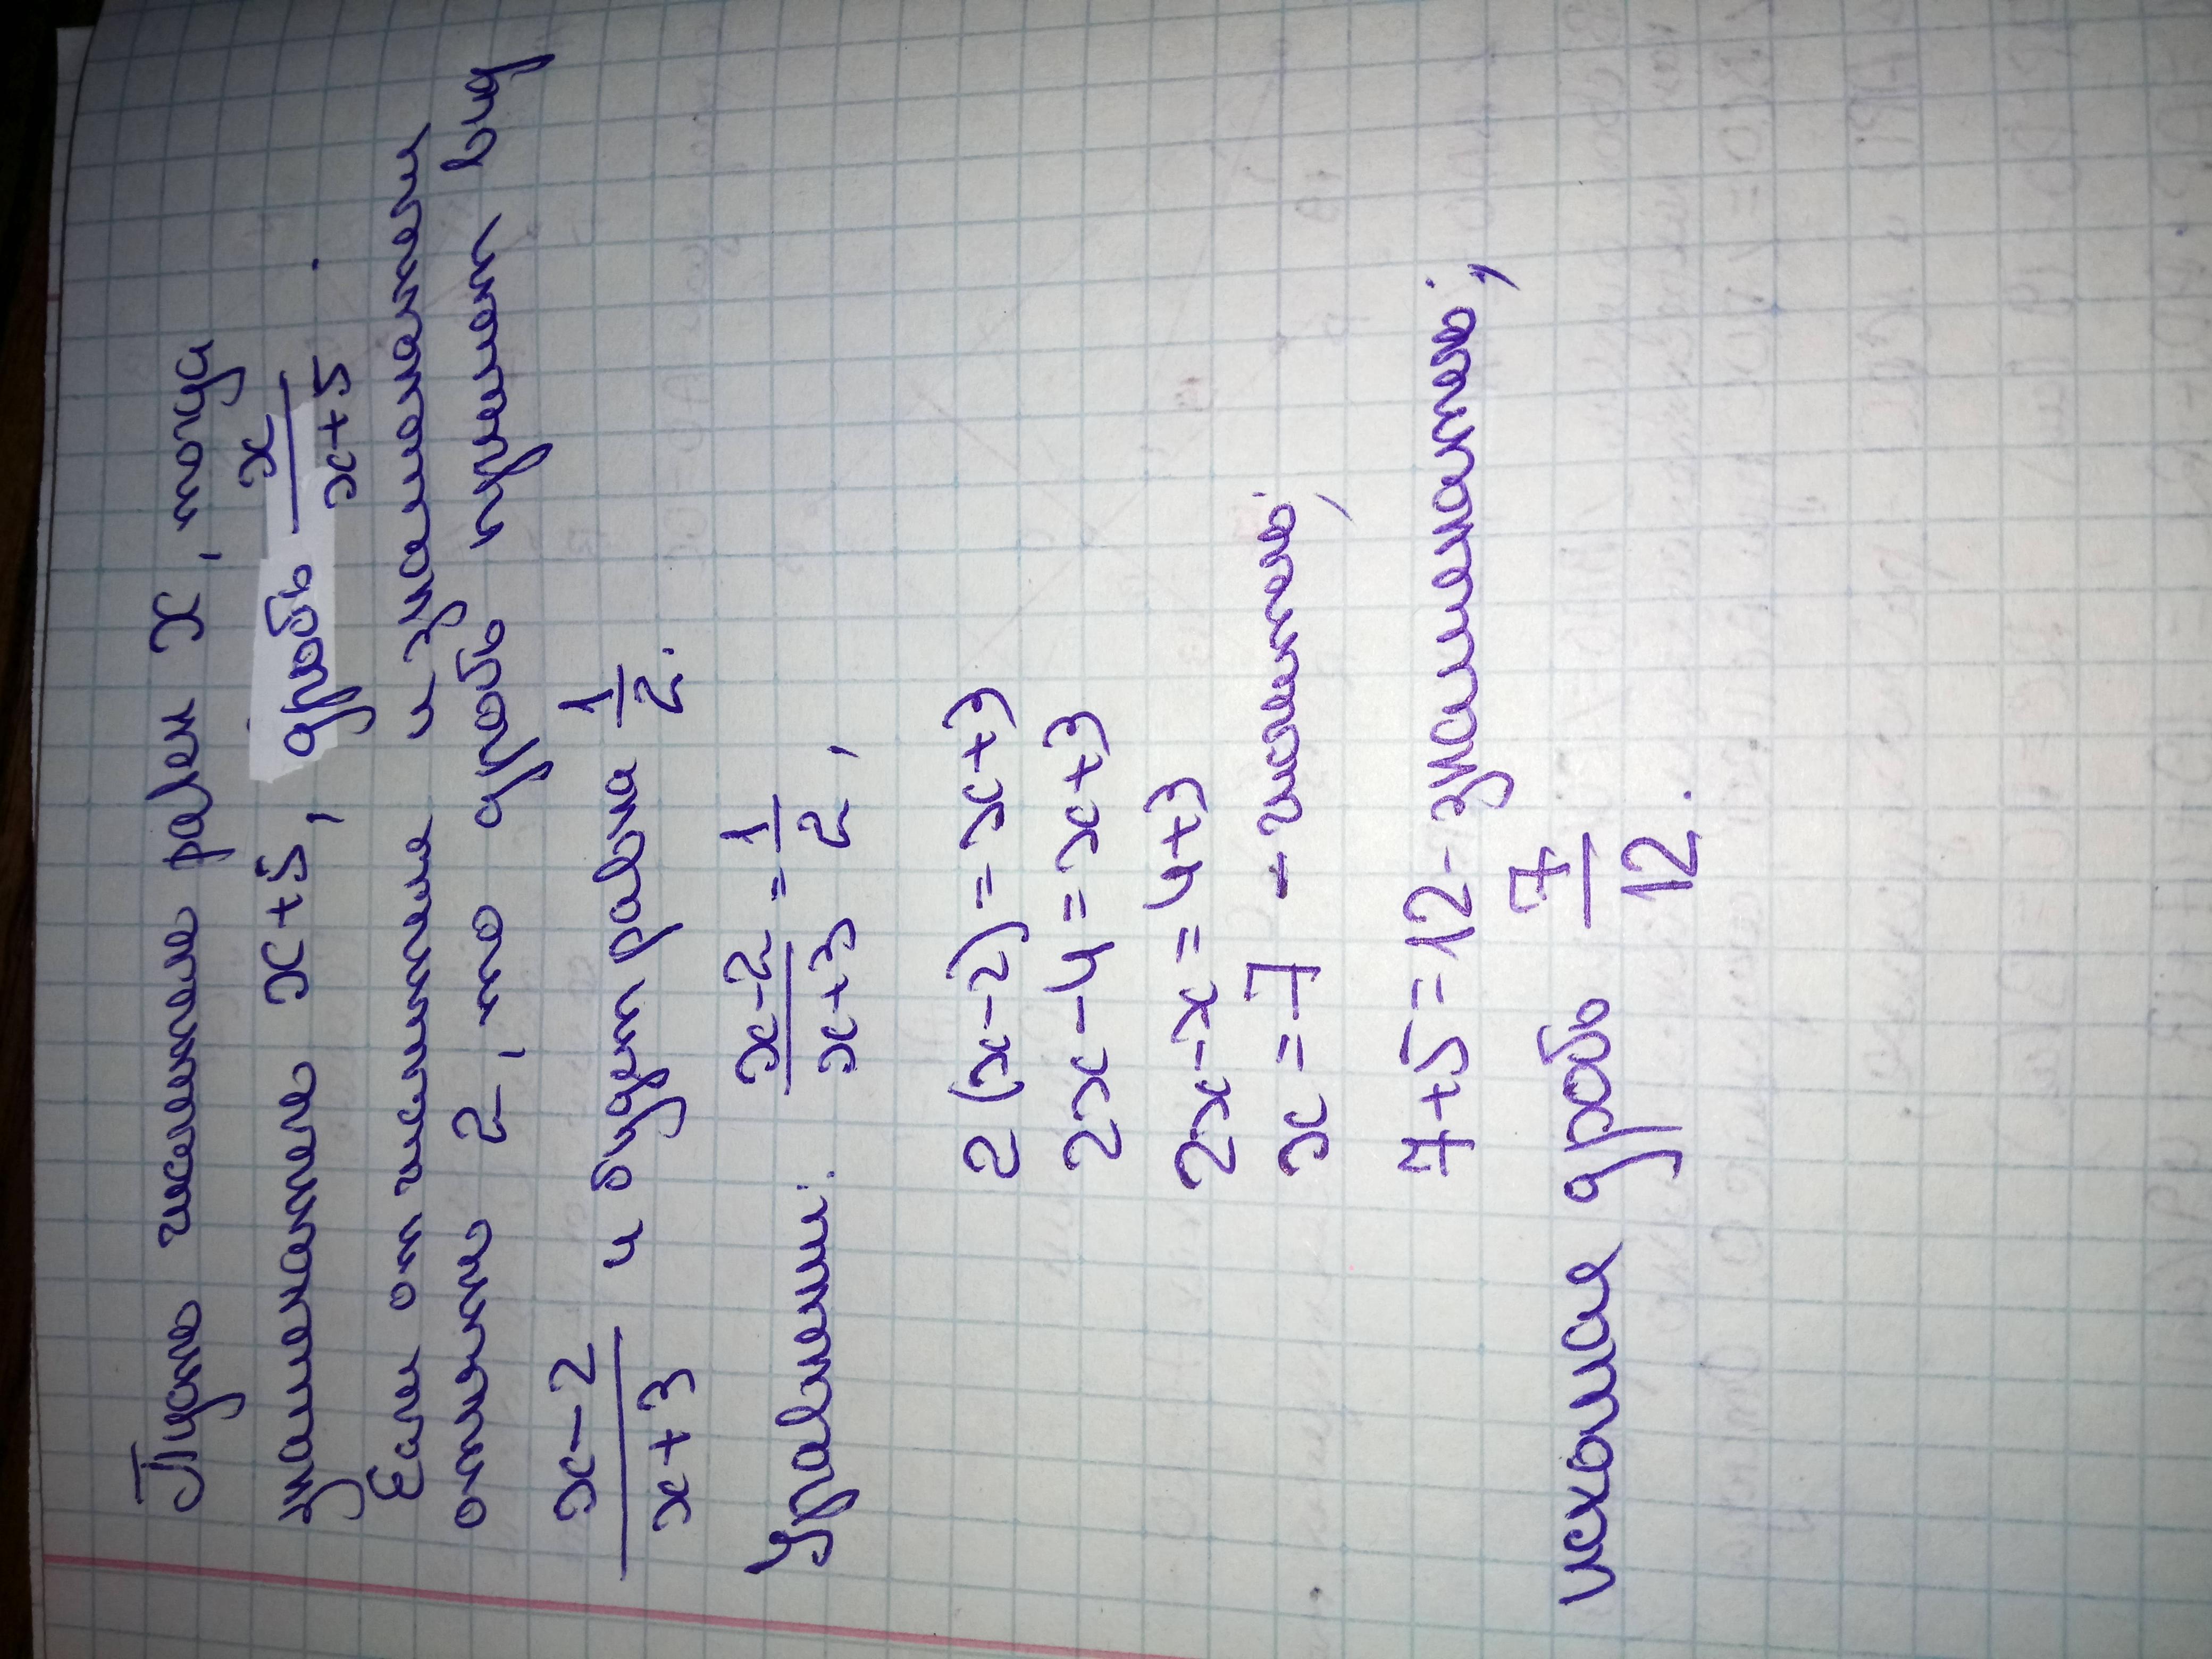 Пусть числитель равен x, тогда
знаменатель x+5, дробь x/(x+5).
Если от числителя и знаменателя
отнять 2, то дробь примет вид
(x-2)/(x+3) и будет равна 1/2.
Уравнение: (x-2)/(x+3) = 1/2,
2(x-2)=x+3
2x-4=x+3
2x-x=4+3
x=7 - числитель;
7+5=12 - знаменатель;
искомая дробь 7/12.